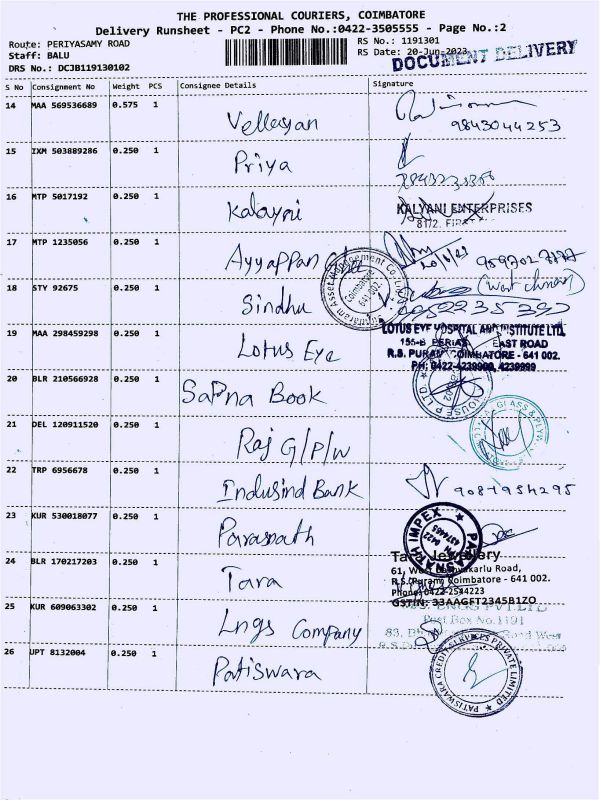 THE PROFESSIONAL COURIERS, COIMBATORE
Delivery Runsheet - PC2 - Phone No.:0422-3505555 - Page No.:2
Route: PERIYASAMY ROAD
Staff: BALU
DRS No.: DCJB119130102
RS No.: 1191301
RS Date: 20-Jun-2023
DOCUMENT DELIVERY
S No Consignment No Weight PCS Consignee Details Signature
14 MAA 569536689 0.575 1 Vellayan
9843044253
15 IXM 503889286 0.250 1 Priya
16 MTP 5017192 0.250 1 Kalayni KALYANI ENTERPRISES
81/2,
17 MTP 1235056 0.250 1 Ayyappan
18 STY 92675 0.250 1 Sindhu
Coimbatore 641 002.
19 MAA 298459298 0.250 1 Lotus Eye LOTUS EYE HOSPITAL AND INSTITUTE LTD,
155-B EAST ROAD
R.S. PURAM COIMBATORE - 641 002.
PH: 0422-4239900, 4239999
20 BLR 210566928 0.250 1 Sapna Book
21 DEL 120911520 0.250 1 Raj G/P/W GLASS & PLY
22 TRP 6956678 0.250 1 Indusind Bank
23 KUR 530018077 0.250 1 Parasnath
PARASNATH IMPEX
24 BLR 170217203 0.250 1 Tara Tara Jewellery
61, West Lokmanyakarlu Road,
R.S.Puram, Coimbatore - 641 002.
Phone: 0422-2544223
GSTIN: 33AAGFT2345B1ZO
25 KUR 609063302 0.250 1 Lngs Company LNGS PVT LTD
Post Box No.1191
83, Road West
26 UPT 8132004 0.250 1 Patiswara PATISWARA CREDIT SERVICES PRIVATE LIMITED